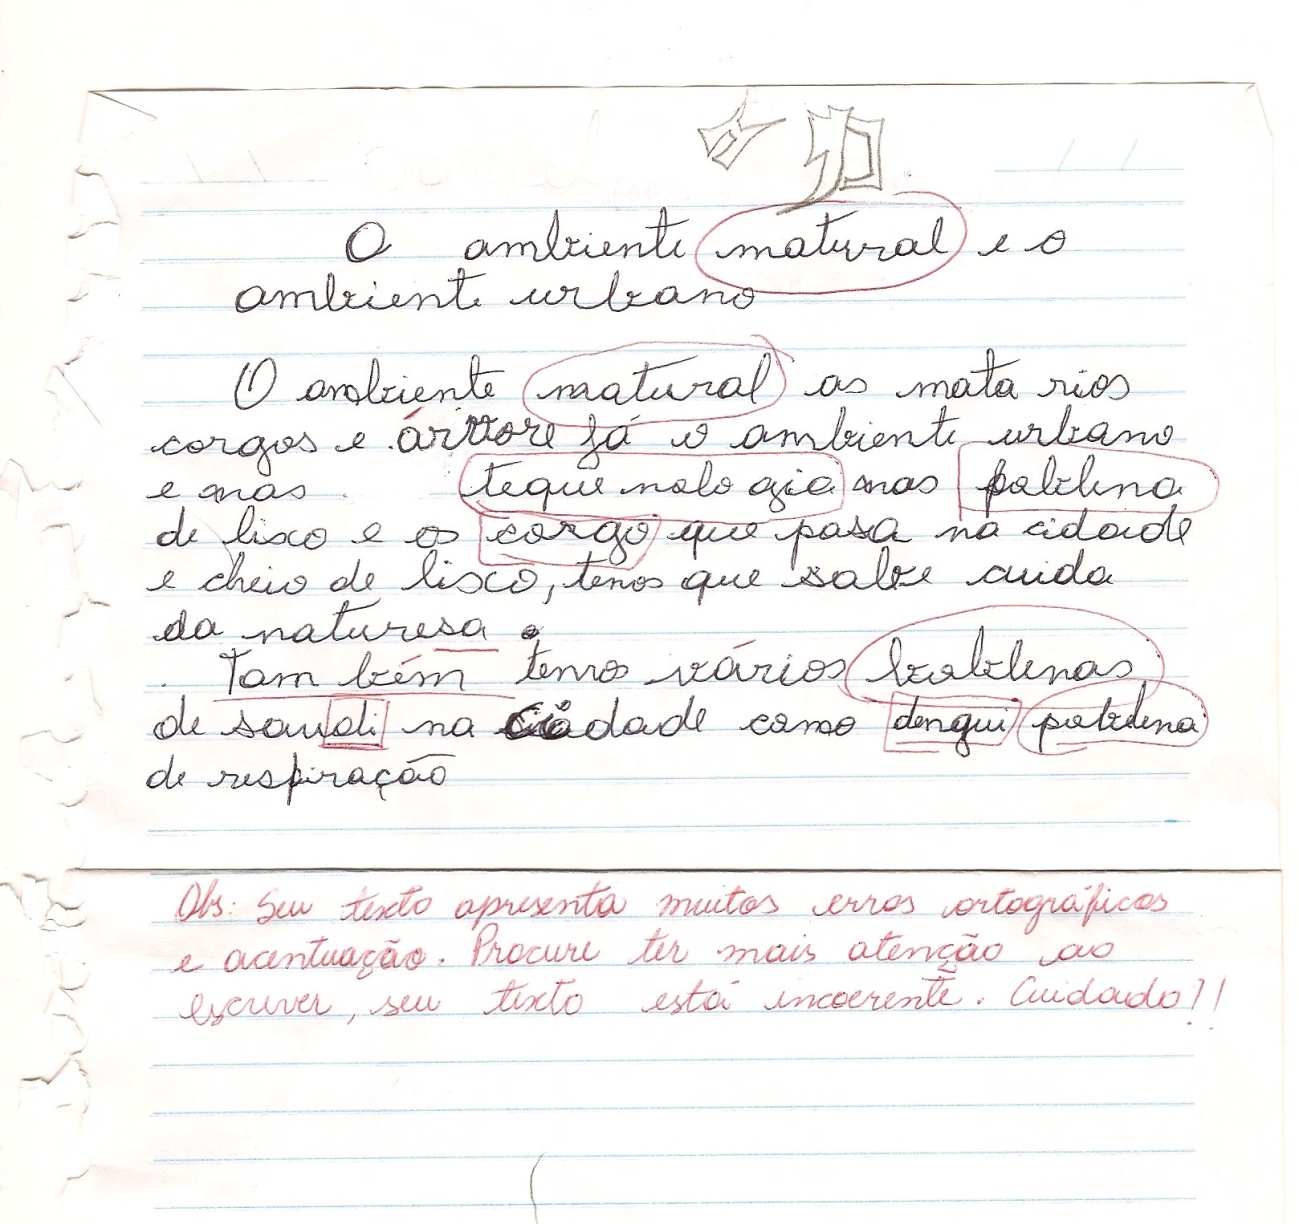 O ambiente matural e o
ambiente urbano
O ambiente matural as mata rios
corgos e árvore já o ambiente urbano
e mas tequenologia mas poblema
de lixo e os corgo que pasa na cidade
e cheio de lixo, temos que sabe cuida
da naturesa.
Também temos vários poblemas
de saudi na cidade como dengui poblema
de respiração
Obs: Seu texto apresenta muitos erros ortográficos
e acentuação. Procure ter mais atenção ao
escrever, seu texto está incoerente. Cuidado!!